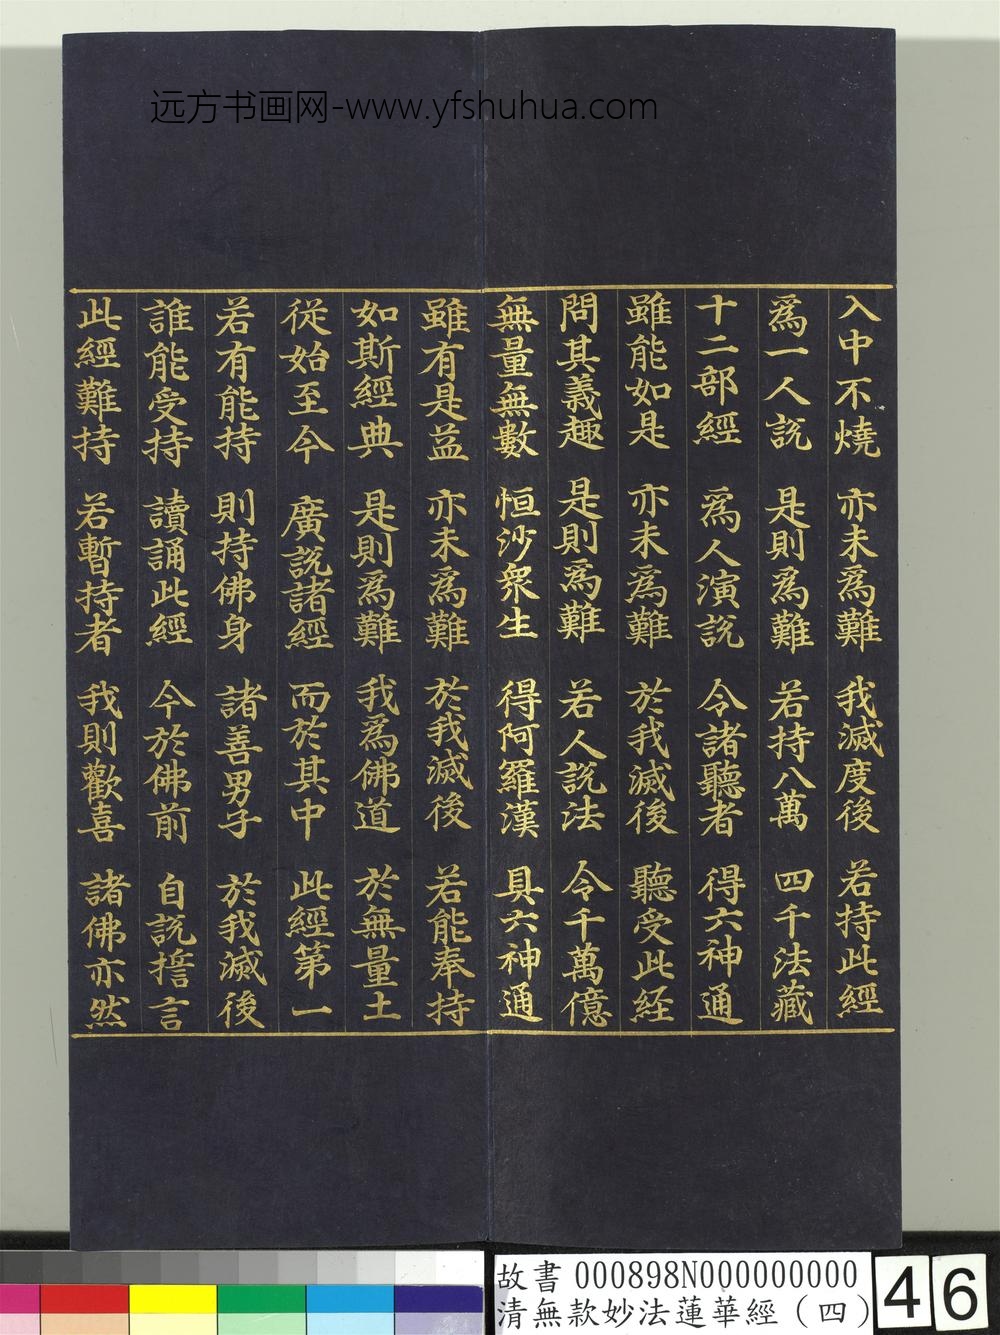 远方书画网-www.yfshuhua.com
入中不燒 亦未為難 我滅度後 若持此經
為一人說 是則為難 若持八萬 四千法藏
十二部經 為人演說 令諸聽者 得六神通
雖能如是 亦未為難 於我滅後 聽受此経
問其義趣 是則為難 若人說法 令千萬億
無量無數 恒沙眾生 得阿羅漢 具六神通
雖有是益 亦未為難 於我滅後 若能奉持
如斯經典 是則為難 我為佛道 於無量土
從始至今 廣說諸經 而於其中 此經第一
若有能持 則持佛身 諸善男子 於我滅後
誰能受持 讀誦此經 今於佛前 自說誓言
此經難持 若暫持者 我則歡喜 諸佛亦然
故書 000898N000000000
清無款妙法蓮華經（四）
46